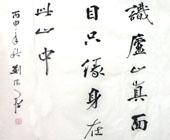 識廬山真面
目只緣身在
此山中
丙申年秋